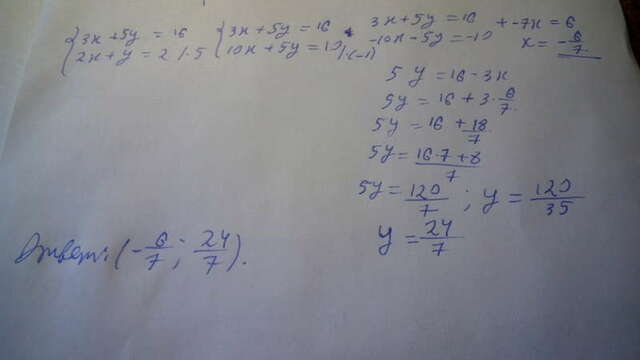 { 3x + 5y = 16 { 3x + 5y = 16 3x + 5y = 16 + -7x = 6
2x + y = 2 /·5 10x + 5y = 10 /·(-1) -10x - 5y = -10 x = -6/7
5y = 16 - 3x
5y = 16 + 3·6/7
5y = 16 + 18/7
5y = 16·7+8/7
5y = 120/7 ; y = 120/35
y = 24/7
Ответ: (-6/7; 24/7).